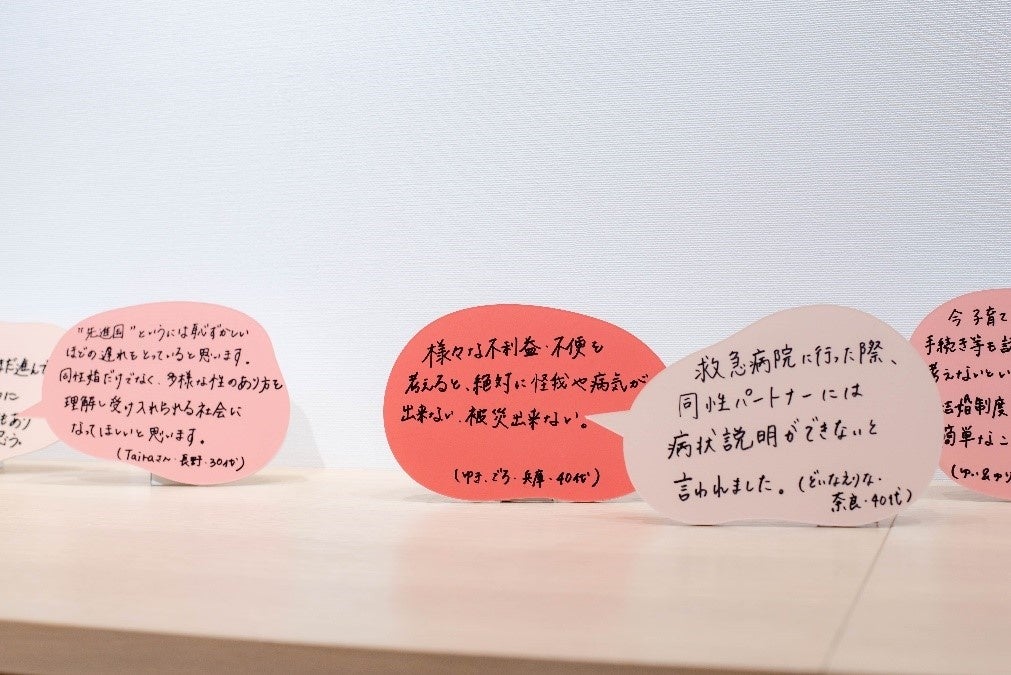 だ進んで
に
もあり
思う
"先進国"というには恥ずかしい
ほどの遅れをとっていると思います。
同性婚だけでなく、多様な性のあり方を
理解し受け入れられる社会に
なってほしいと思います。
(Tairaさん・長野・30代)
様々な不利益・不便を
考えると、絶対に怪我や病気が
出来ない、被災出来ない。
(ゆき、ごろ・兵庫・40代)
救急病院に行った際、
同性パートナーには
病状説明ができないと
言われました。(どいなえりな・
奈良・40代)
今子育て
手続き等も
考えないとい
結婚制度
簡単なこ